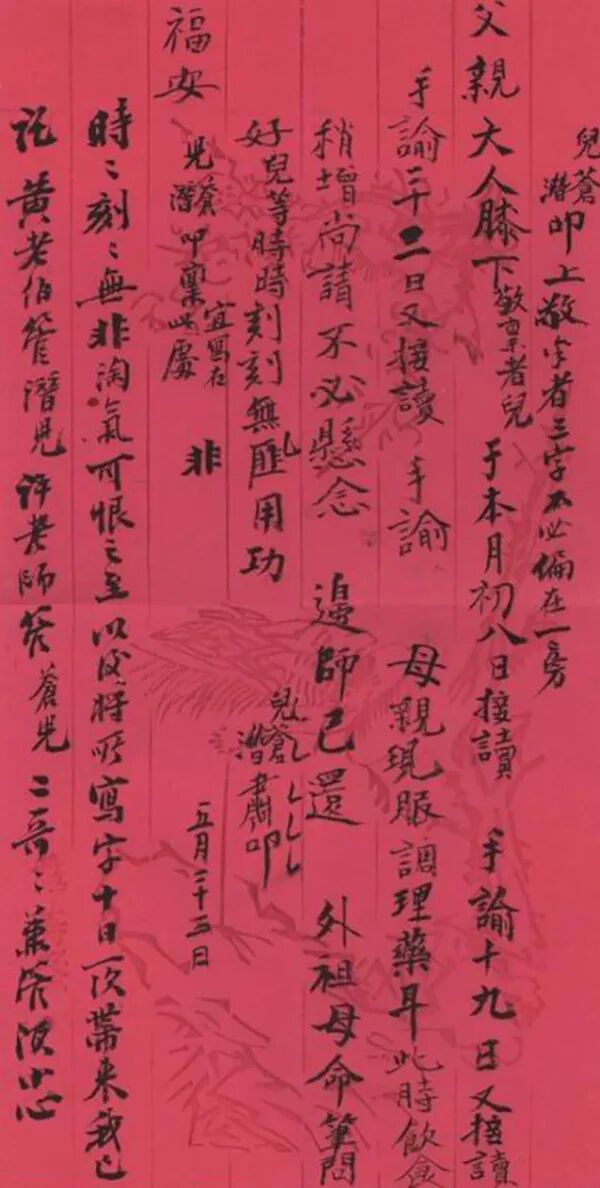 兒蒼潛叩上敬稟者三字不必偏在一旁
父親大人膝下敬稟者兒于本月初八日接讀 手諭十九日又接讀
手諭二十二日又接讀 手諭 母親現服調理藥耳此時飲食
稍增尚請不必懸念 邊師已還 外祖母命筆問
好兒等時時刻刻無匪用功 兒蒼潛肅叩
福安 兒蒼潛叩稟此處宜寫在 非 五月二十三日
時〻刻〻無非淘氣可恨之至以後將所寫字十日一次帶來我已
託黃老伯管潛兒許老師管蒼兒二哥〻兼管須小心